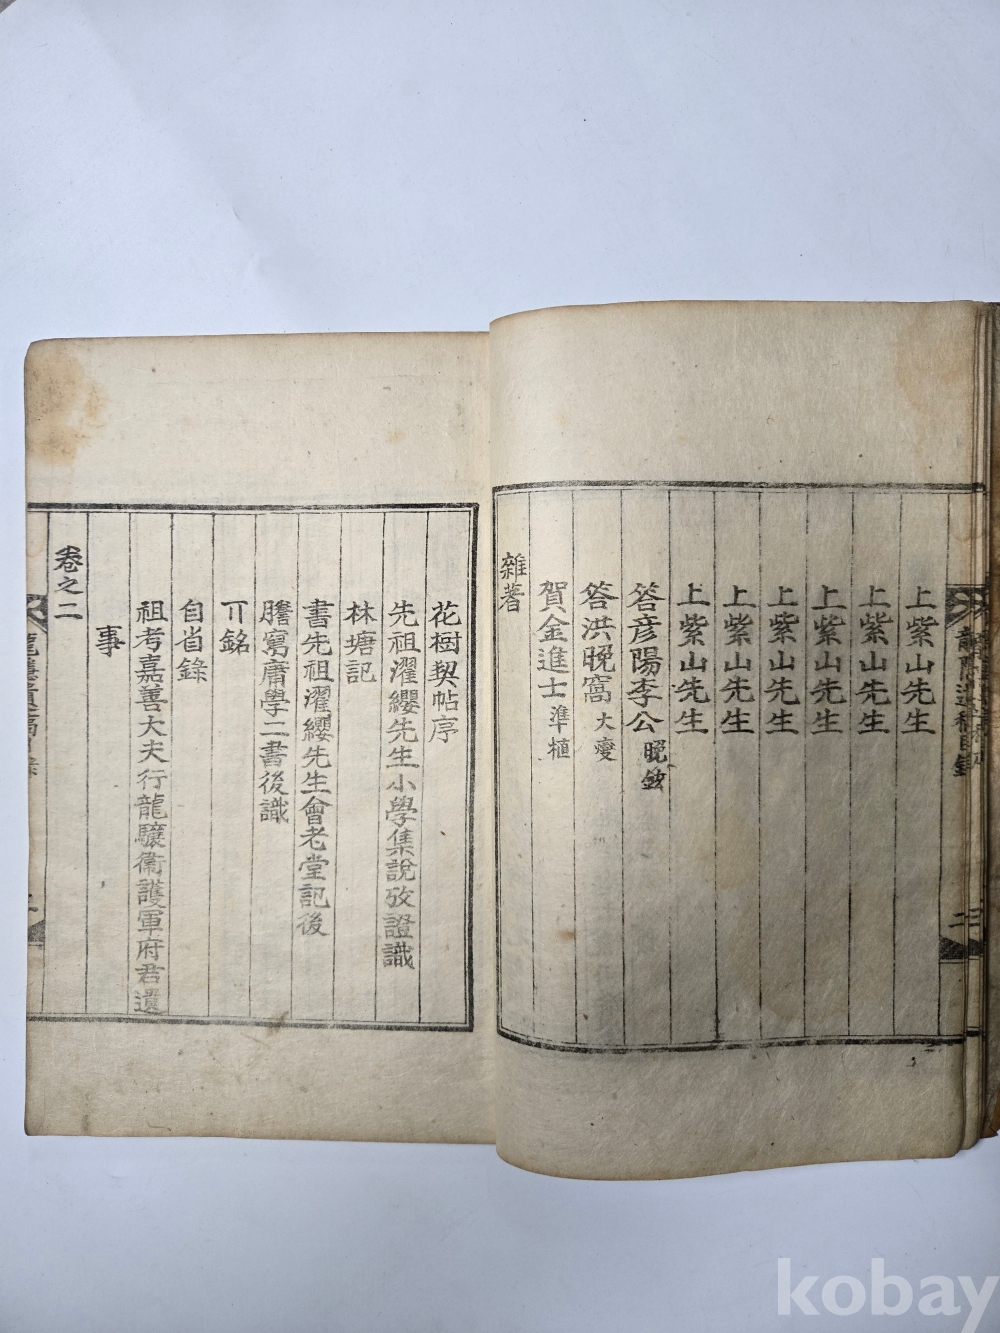 上紫山先生
上紫山先生
上紫山先生
上紫山先生
上紫山先生
上紫山先生
答彦陽李公 晩銓
答洪晩窩 大燮
賀金進士 準植
雜著
花樹契帖序
先祖濯纓先生小學集說攷證識
林塘記
書先祖濯纓先生會老堂記後
謄寫庸學二書後識
丌銘
自省錄
祖考嘉善大夫行龍驤衛護軍府君遺
事
卷之二
kobay